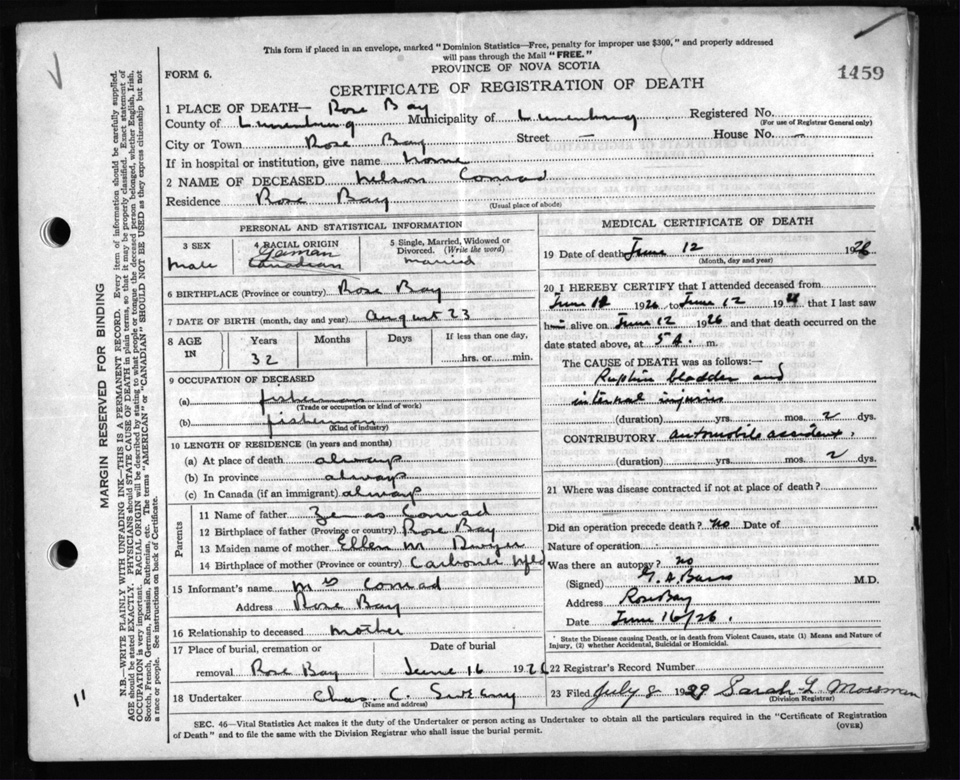 This form if placed in an envelope, marked "Dominion Statistics—Free, penalty for improper use $300," and properly addressed
will pass through the Mail "FREE."
PROVINCE OF NOVA SCOTIA
FORM 6.
CERTIFICATE OF REGISTRATION OF DEATH
1459
1 PLACE OF DEATH— Rose Bay
County of Lunenburg Municipality of Lunenburg Registered No.
(For use of Registrar General only)
City or Town Rose Bay Street — House No. —
If in hospital or institution, give name home
2 NAME OF DECEASED Nelson Conrad
Residence Rose Bay
(Usual place of abode)
PERSONAL AND STATISTICAL INFORMATION
3 SEX 4 RACIAL ORIGIN 5 Single, Married, Widowed or
Divorced. (Write the word)
German
Male Canadian married
6 BIRTHPLACE (Province or country) Rose Bay
7 DATE OF BIRTH (month, day and year) August 23
8 AGE IN Years Months Days If less than one day,
32 hrs. or min.
9 OCCUPATION OF DECEASED
(a) fisherman
(Trade or occupation or kind of work)
(b) fisherman
(Kind of industry)
10 LENGTH OF RESIDENCE (in years and months)
(a) At place of death always
(b) In province always
(c) In Canada (if an immigrant) always
Parents
11 Name of father Zenas Conrad
12 Birthplace of father (Province or country) Rose Bay
13 Maiden name of mother Ellen M Dwyer
14 Birthplace of mother (Province or country) Carbonear Nfld
15 Informant's name Mrs Conrad
Address Rose Bay
16 Relationship to deceased mother
17 Place of burial, cremation or Date of burial
removal Rose Bay June 16 1926
18 Undertaker Chas. C. Sweeny
(Name and address)
MEDICAL CERTIFICATE OF DEATH
19 Date of death June 12 1926
(Month, day and year)
20 I HEREBY CERTIFY that I attended deceased from
June 12 1926 to June 12 192 that I last saw
him alive on June 12 1926 and that death occurred on the
date stated above, at 5 A. m.
The CAUSE of DEATH was as follows:—
bladder and
internal injuries
(duration) yrs. mos. 2 dys.
CONTRIBUTORY automobile accident.
(duration) yrs. mos. 2 dys.
21 Where was disease contracted if not at place of death?
Did an operation precede death? no Date of
Nature of operation
Was there an autopsy? no
(Signed) M.D.
Address Rose Bay
Date June 16/26.
* State the Disease causing Death, or in death from Violent Causes, state (1) Means and Nature of
Injury, (2) whether Accidental, Suicidal or Homicidal.
22 Registrar's Record Number
23 Filed July 8 1929 Sarah L. Mossman
(Division Registrar)
SEC. 46—Vital Statistics Act makes it the duty of the Undertaker or person acting as Undertaker to obtain all the particulars required in the "Certificate of Registration
of Death" and to file the same with the Division Registrar who shall issue the burial permit.
(OVER)
MARGIN RESERVED FOR BINDING
N.B.—WRITE PLAINLY WITH UNFADING INK—THIS IS A PERMANENT RECORD. Every item of information should be carefully supplied.
AGE should be stated EXACTLY. PHYSICIANS should STATE CAUSE OF DEATH in plain terms, so that it may be properly classified. Exact statement of
OCCUPATION is very important. RACIAL ORIGIN will be described by stating to what people or tongue the deceased person belonged, whether English, Irish,
Scotch, French, German, Russian, Ruthenian, etc. The terms "AMERICAN" or "CANADIAN" SHOULD NOT BE USED as they express citizenship but not
a race or people. See instructions on back of Certificate.
11